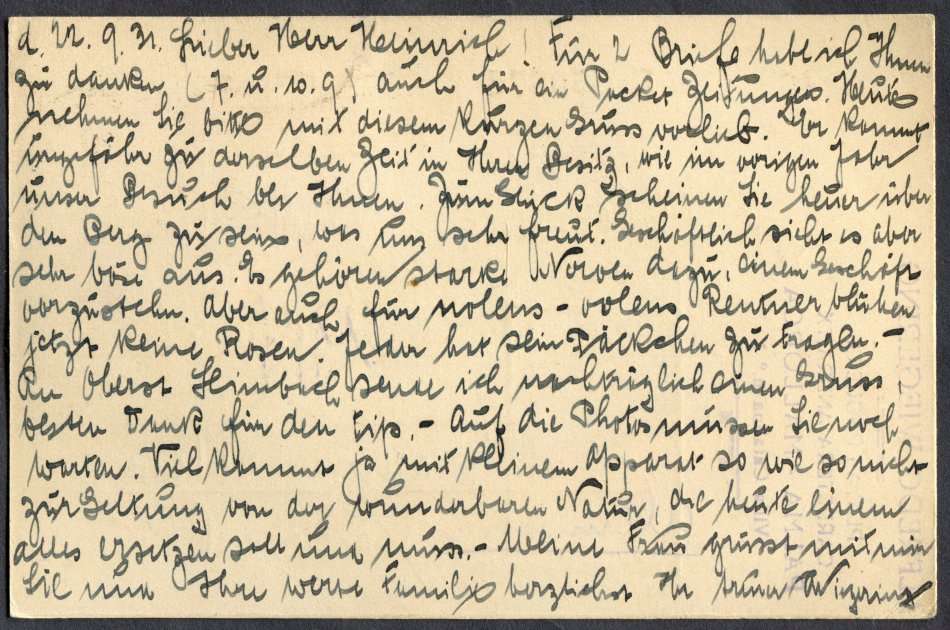 d. 22. 9. 31. Lieber Herr Heinrich! Für 2 Briefe habe ich Ihnen
zu danken, (7. u. 10. 9) auch für ein Packet Zeitungen. Heute
nehmen Sie bitte mit diesem kurzen Gruss vorlieb. Er kommt
ungefähr zu derselben Zeit in Ihren Besitz, wie im vorigen Jahr
unser Besuch bei Ihnen. Zum Glück scheinen Sie heuer über
den Berg zu sein, was uns sehr freut. Geschäftlich sieht es aber
sehr böse aus. Es gehören starke Nerven dazu, einem Geschäft
vorzustehn. Aber auch für nolens-volens Rentner blühen
jetzt keine Rosen. Jeder hat sein Päckchen zu tragen. -
An Oberst sende ich nachträglich einen Gruss,
besten Dank für den Tip. - Auf die Photos müssen Sie noch
warten. Viel kommt ja mit kleinem Apparat so wie so nicht
zur Geltung von der wunderbaren Natur, die heute einem
alles ersetzen soll und muss. - Meine Frau grüsst mit mir
Sie und Ihre werte Familie herzlichst Ihr treuer